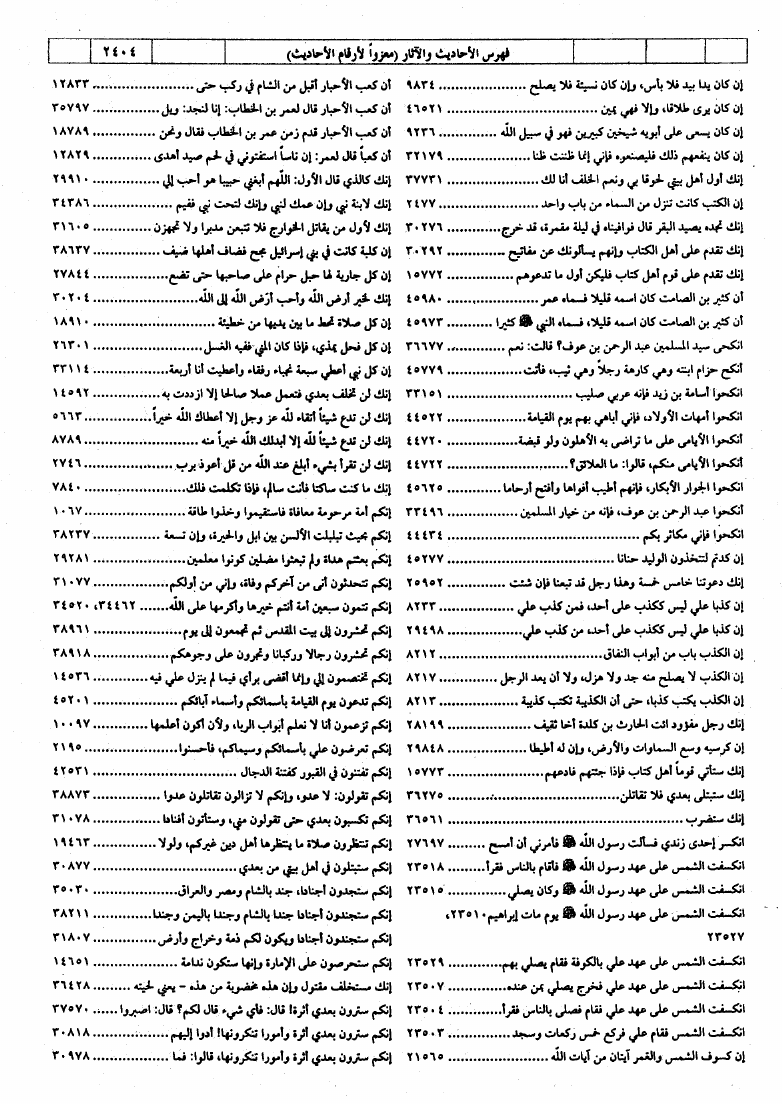 فهرس الأحاديث والآثار (معزواً لأرقام الأحاديث)
٢٤٠٤
إن كان يدا بيد فلا بأس، وإن كان نسيئة فلا يصلح ٩٨٣٤
إن كان يرى طلاقا، وإلا فهي يمين ٤٦٥٢١
إن كان يسعى على أبويه شيخين كبيرين فهو في سبيل الله ٩٢٣٦
إن كان ينفعهم ذلك فليصنعوه فإني إنما ظننت ظنا ٣٢١٧٩
إنك أول أهل بيتي لحوقا بي ونعم الخلف أنا لك ٣٧٧٣١
إن الكتب كانت تنزل من السماء من باب واحد ٢٤٧٧
إنك تجده يصيد البقر قال فوافيناه في ليلة مقمرة، قد خرج ٣٠٢٧٦
إنك تقدم على أهل الكتاب وإنهم يسألونك عن مفاتيح ٣٠٢٩٢
إنك تقدم على قوم أهل كتاب فليكن أول ما تدعوهم ١٥٧٧٢
أن كثير بن الصامت كان اسمه قليلا فسماه عمر ٤٥٩٨٠
أن كثير بن الصامت كان اسمه قليلا، فسماه النبي ﷺ كثيرا ٤٥٩٧٣
انكحي سيد المسلمين عبد الرحمن بن عوف؟ قالت: نعم ٣٦٦٧٧
أنكح حزام ابنته وهي كارهة رجلاً وهي ثيب، فأتت ٤٥٧٧٩
انكحوا أسامة بن زيد فإنه عربي صليب ٣٣١٥١
انكحوا أمهات الأولاد، فإني أباهي بهم يوم القيامة ٤٤٥٢٢
أنكحوا الأيامى على ما تراضى به الأهلون ولو قبضة ٤٤٧٢٠
أنكحوا الأيامى منكم، قالوا: ما العلائق؟ ٤٤٧٢٢
انكحوا الجوار الأبكار، فإنهم أطيب أفواها وأفتح أرحاما ٤٥٦٢٥
انكحوا عبد الرحمن بن عوف، فإنه من خيار المسلمين ٣٣٤٩٦
انكحوا فإني مكاثر بكم ٤٤٤٣٤
إن كدتم لتتخذون الوليد حنانا ٤٥٢٧٧
إنك دعوتنا خامس خمسة وهذا رجل قد تبعنا فإن شئت ٢٥٩٥٢
إن كذبا علي ليس ككذب على أحد، فمن كذب علي ٨٢٣٣
إن كذبا علي ليس ككذب على أحد، من كذب علي ٢٩٤٩٨
إن الكذب باب من أبواب النفاق ٨٢١٢
إن الكذب لا يصلح منه جد ولا هزل، ولا أن يعد الرجل ٨٢١٧
إن الكذب يكتب كذبا، حتى أن الكذيبة تكتب كذيبة ٨٢١٣
إنك رجل مفؤود ائت الحارث بن كلدة أخا ثقيف ٢٨١٩٩
إن كرسيه وسع السماوات والأرض، وإن له أطيطا ٢٩٨٤٨
إنك ستأتي قوماً أهل كتاب فإذا جئتهم فادعهم ١٥٧٧٣
إنك ستبتلى بعدي فلا تقاتلن ٣٦٢٧٥
إنك ستضرب ٣٦٥٦١
انكسر إحدى زندي فسألت رسول الله ﷺ فأمرني أن أمسح ٢٧٦٩٧
انكسفت الشمس على عهد رسول الله ﷺ فأقام بالناس فقرأ ٢٣٥١٨
انكسفت الشمس على عهد رسول الله ﷺ وكان يصلي ٢٣٥١٥
انكسفت الشمس على عهد رسول الله ﷺ يوم مات إبراهيم ٢٣٥١٠،
٢٣٥٢٧
انكسفت الشمس على عهد علي بالكوفة فقام يصلي بهم ٢٣٥٢٩
انكسفت الشمس على عهد علي فخرج يصلي بمن عنده ٢٣٥٠٧
انكسفت الشمس على عهد علي فقام فصلى بالناس فقرأ ٢٣٥٠٤
انكسفت الشمس فقام علي فركع خمس ركعات وسجد ٢٣٥٠٣
إن كسوف الشمس والقمر آيتان من آيات الله ٢١٥٦٥
أن كعب الأحبار أقبل من الشام في ركب حتى ١٢٨٣٣
أن كعب الأحبار قال لعمر بن الخطاب: إنا لنجد: ويل ٣٥٧٩٧
أن كعب الأحبار قدم زمن عمر بن الخطاب فقال ونحن ١٨٧٨٩
أن كعباً قال لعمر: إن ناساً استفتوني في لحم صيد أهدى ١٢٨٢٩
إنك كالذي قال الأول: اللهم أبغني حبيبا هو أحب إلي ٢٩٩١٠
إنك لابنة نبي وإن عمك لنبي وإنك لتحت نبي ففيم ٣٤٣٨٦
إنك لأول من يقاتل الخوارج فلا تتبعن مدبرا ولا تجهزن ٣١٦٠٥
إن كلبة كانت في بني إسرائيل مجح فضاف أهلها ضيف ٣٨٦٣٧
إن كل جارية لها حبل حرام على صاحبها حتى تضع ٢٧٨٤٤
إنك لخير أرض الله وأحب أرض الله إلى الله ٣٠٢٠٤
إن كل صلاة تحط ما بين يديها من خطيئة ١٨٩١٠
إن كل فحل يمذي، فإذا كان المني ففيه الغسل ٢٦٣٠١
إن كل نبي أعطي سبعة نجباء رفقاء وأعطيت أنا أربعة ٣٣١١٤
إنك لن تخلف بعدي فتعمل عملا صالحا إلا ازددت به ١٤٥٩٢
إنك لن تدع شيئاً أتقاء لله عز وجل إلا أعطاك الله خيراً ٥٦٦٣
إنك لن تدع شيئاً لله إلا أبدلك الله خيراً منه ٨٧٨٩
إنك لن تقرأ بشيء أبلغ عند الله من قل أعوذ برب ٢٧٤٦
إنك ما كنت ساكتا فأنت سالم، فإذا تكلمت فلك ٧٨٤٠
إنكم أمة مرحومة معافاة فاستقيموا وخذوا طاقة ١٠٦٧
إنكم بحيث تبلبلت الألسن بين ابل والحيرة، وإن تسعة ٣٨٢٣٧
إنكم بعثتم هداة ولم تبعثوا مضلين كونوا معلمين ٢٩٢٨١
إنكم تتحدثون أني من آخركم وفاة، وإني من أولكم ٣١٠٧٧
إنكم تتمون سبعين أمة أنتم خيرها وأكرمها على الله ٣٤٤٦٢، ٣٤٥٢٠
إنكم تحشرون إلى بيت المقدس ثم تجمعون إلى يوم ٣٨٩٦١
إنكم تحشرون رجالا وركبانا وتجرون على وجوهكم ٣٨٩١٨
إنكم تختصمون إلي وإنما أقضى برأي فيما لم ينزل علي فيه ١٤٥٣٦
إنكم تدعون يوم القيامة بأسمائكم وأسماء آبائكم ٤٥٢٠١
إنكم تزعمون أنا لا نعلم أبواب الربا، ولأن أكون أعلمها ١٠٠٩٧
إنكم تعرضون علي بأسمائكم وسيماكم، فأحسنوا ٢١٩٥
إنكم تفتنون في القبور كفتنة الدجال ٤٢٥٣١
إنكم تقولون: لا عدو، وإنكم لا تزالون تقاتلون عدوا ٣٨٨٧٣
إنكم تكسبون بعدي حتى تقولون متي، وستأتون أفنادا ٣١٠٧٨
إنكم تنتظرون صلاة ما ينتظرها أهل دين غيركم، ولولا ١٩٤٦٣
إنكم ستبتلون في أهل بيتي من بعدي ٣٠٨٧٧
إنكم ستجدون أجنادا، جند بالشام ومصر والعراق ٣٥٠٣٠
إنكم ستجندون أجنادا جندا بالشام وجندا باليمن وجندا ٣٨٢١١
إنكم ستجندون أجنادا ويكون لكم ذمة وخراج وأرض ٣١٨٠٧
إنكم ستحرصون على الإمارة وإنها ستكون ندامة ١٤٦٥١
إنك مستخلف مقتول وإن هذه مخضوبة من هذه - يعني لحيته ٣٦٤٢٨
إنكم سترون بعدي أثرة! قال: فأي شيء قال لكم؟ قال: اصبروا ٣٧٥٧٠
إنكم سترون بعدي أثرة وأمورا تنكرونها! أدوا إليهم ٣٠٨١٨
إنكم سترون بعدي أثرة وأمورا تنكرونها، قالوا: فما ٣٠٩٧٨